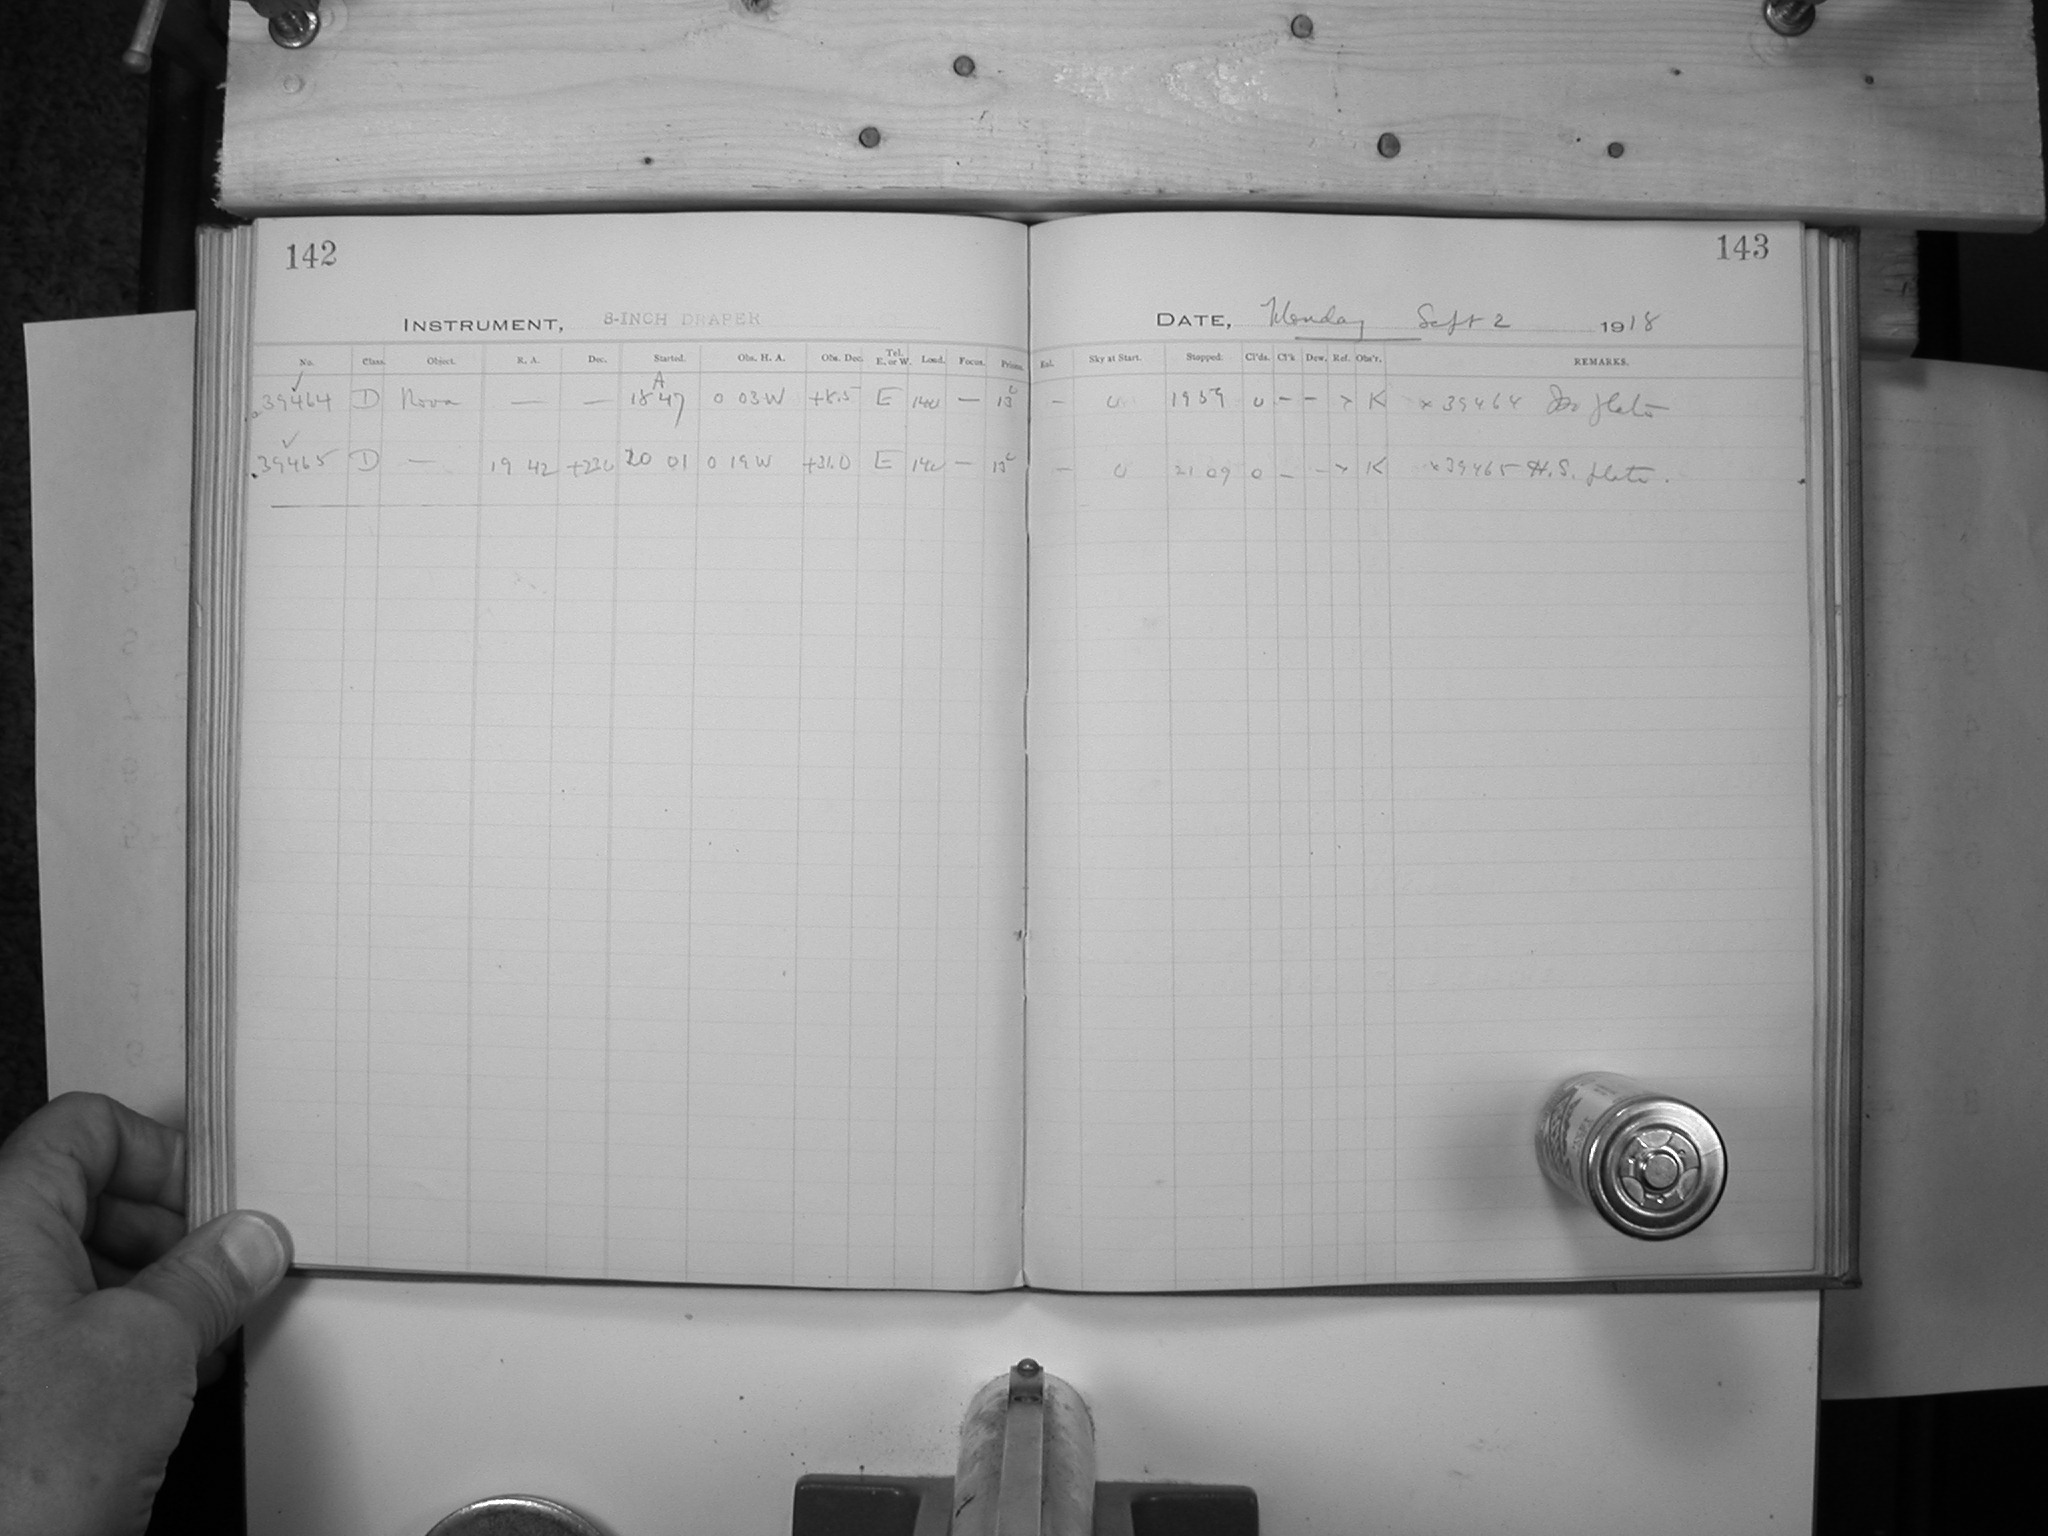 142
INSTRUMENT, 8-INCH DRAPER
No. Class. Object. R. A. Dec. Started. Obs. H. A. Obs. Dec. Tel. E. or W. Load. Focus. Prisms.
39464 D Nova — — 18 47 0 03 W +8.5 E — 13
A
39465 D — 19 42 20 01 0 19 W +31.0 E — 13
143
DATE, Monday Sept 2 1918
Sky at Start. Stopped. Cl'ds. Cl'k Dew. Ref. Obs'r. REMARKS.
— 0 19 59 0 – – K × 39464 plate
— 0 21 09 0 – – K × 39465 H.S. plate.